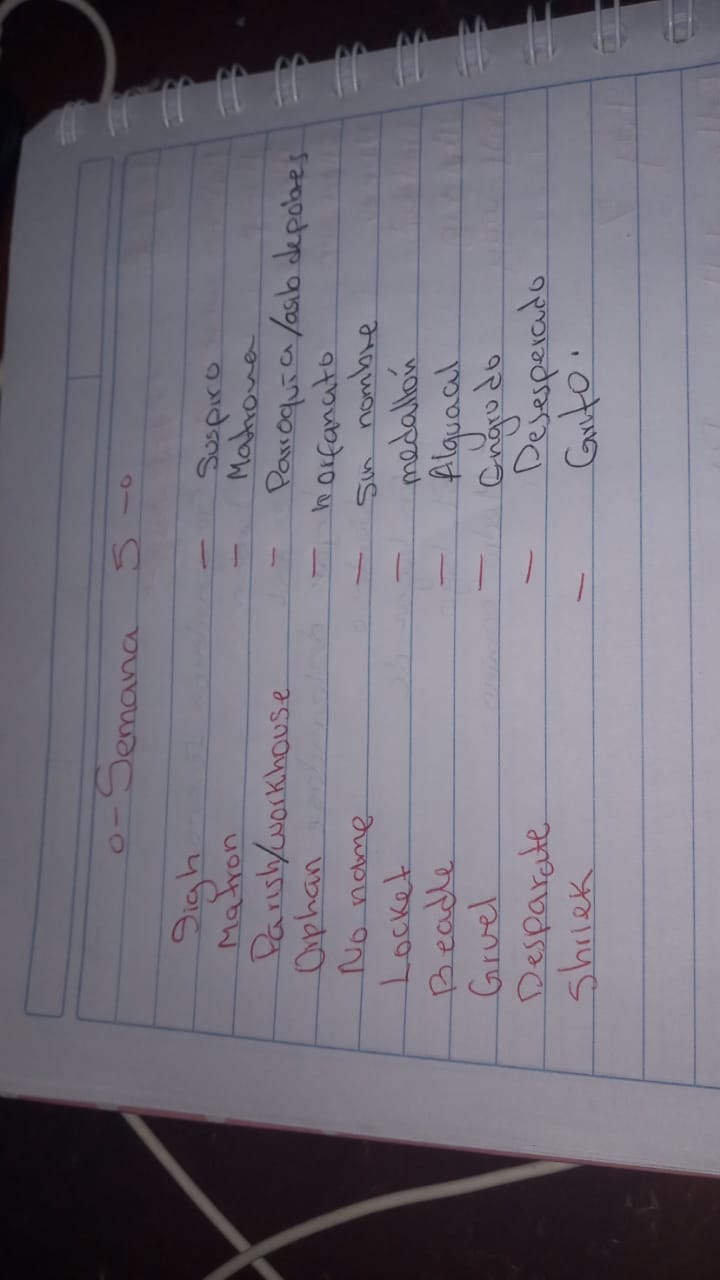 o-Semana 5-o
Sigh - Suspiro
Matron - Matrona
Parish/workhouse - Parroquia/asilo de pobres
Orphan - horfanato
No name - Sin nombre
Locket - medallón
Beadle - Alguacil
Gruel - Engrudo
Desparate - Desesperado
Shriek - Grito.